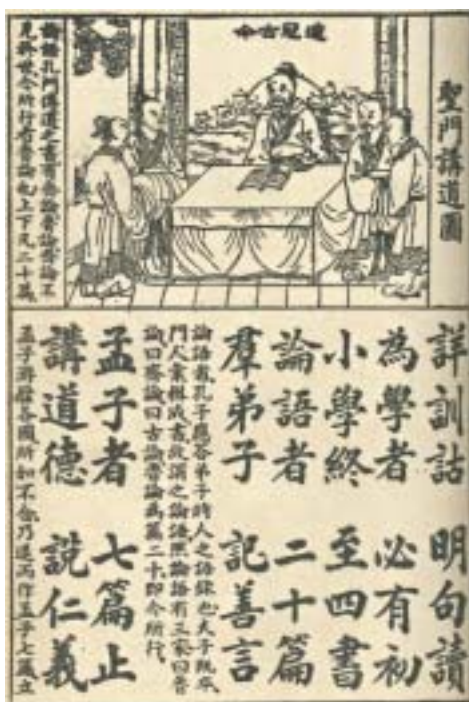 聖門講道圖
道冠古今
論語孔門講道之書有論魯論論不
見於世今所行者魯論也上下凡二十篇
詳訓詁 明句讀
為學者 必有初
小學終 至四書
論語者 二十篇
羣弟子 記善言
論語載孔子應答弟子時人之語錄也夫子既卒
門人彙輯成書故謂之論語然論語有三家曰魯
論曰齊論曰古論魯論為篇二十即今所行
孟子者 七篇止
講道德 説仁義
孟子游歷各國所如不合乃退而作孟子七篇立